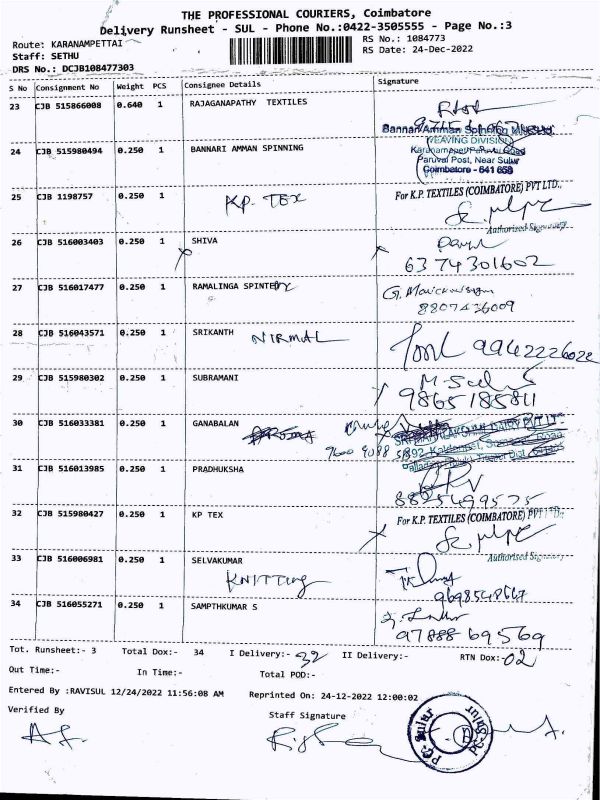 THE PROFESSIONAL COURIERS, Coimbatore
Delivery Runsheet - SUL - Phone No.:0422-3505555 - Page No.:3
Route: KARANAMPETTAI
RS No.: 1084773
Staff: SETHU
RS Date: 24-Dec-2022
DRS No.: DCJB108477303
S No Consignment No Weight PCS Consignee Details Signature
23 CJB 515866008 0.640 1 RAJAGANAPATHY TEXTILES
24 CJB 515980494 0.250 1 BANNARI AMMAN SPINNING
Bannari Amman Spinning
WEAVING DIVISION
Paruvai Post, Near Sulur
Coimbatore - 641 658
25 CJB 1198757 0.250 1 KP. TEX
For K.P. TEXTILES (COIMBATORE) PVT LTD.,
Authorised Signatory
26 CJB 516003403 0.250 1 SHIVA
6374301602
27 CJB 516017477 0.250 1 RAMALINGA SPINTEX
8807426009
28 CJB 516043571 0.250 1 SRIKANTH NIRMAL
9942226022
29 CJB 515980302 0.250 1 SUBRAMANI
9865185811
30 CJB 516033381 0.250 1 GANABALAN
31 CJB 516013985 0.250 1 PRADHUKSHA
8825499575
32 CJB 515980427 0.250 1 KP TEX
For K.P. TEXTILES (COIMBATORE) PVT LTD.
Authorised Signatory
33 CJB 516006981 0.250 1 SELVAKUMAR
KNITTING
9698548667
34 CJB 516055271 0.250 1 SAMPTHKUMAR S
97888 69569
Tot. Runsheet:- 3 Total Dox:- 34 I Delivery:- 32 II Delivery:- RTN Dox:- 02
Out Time:- In Time:- Total POD:-
Entered By :RAVISUL 12/24/2022 11:56:08 AM Reprinted On: 24-12-2022 12:00:02
Verified By Staff Signature